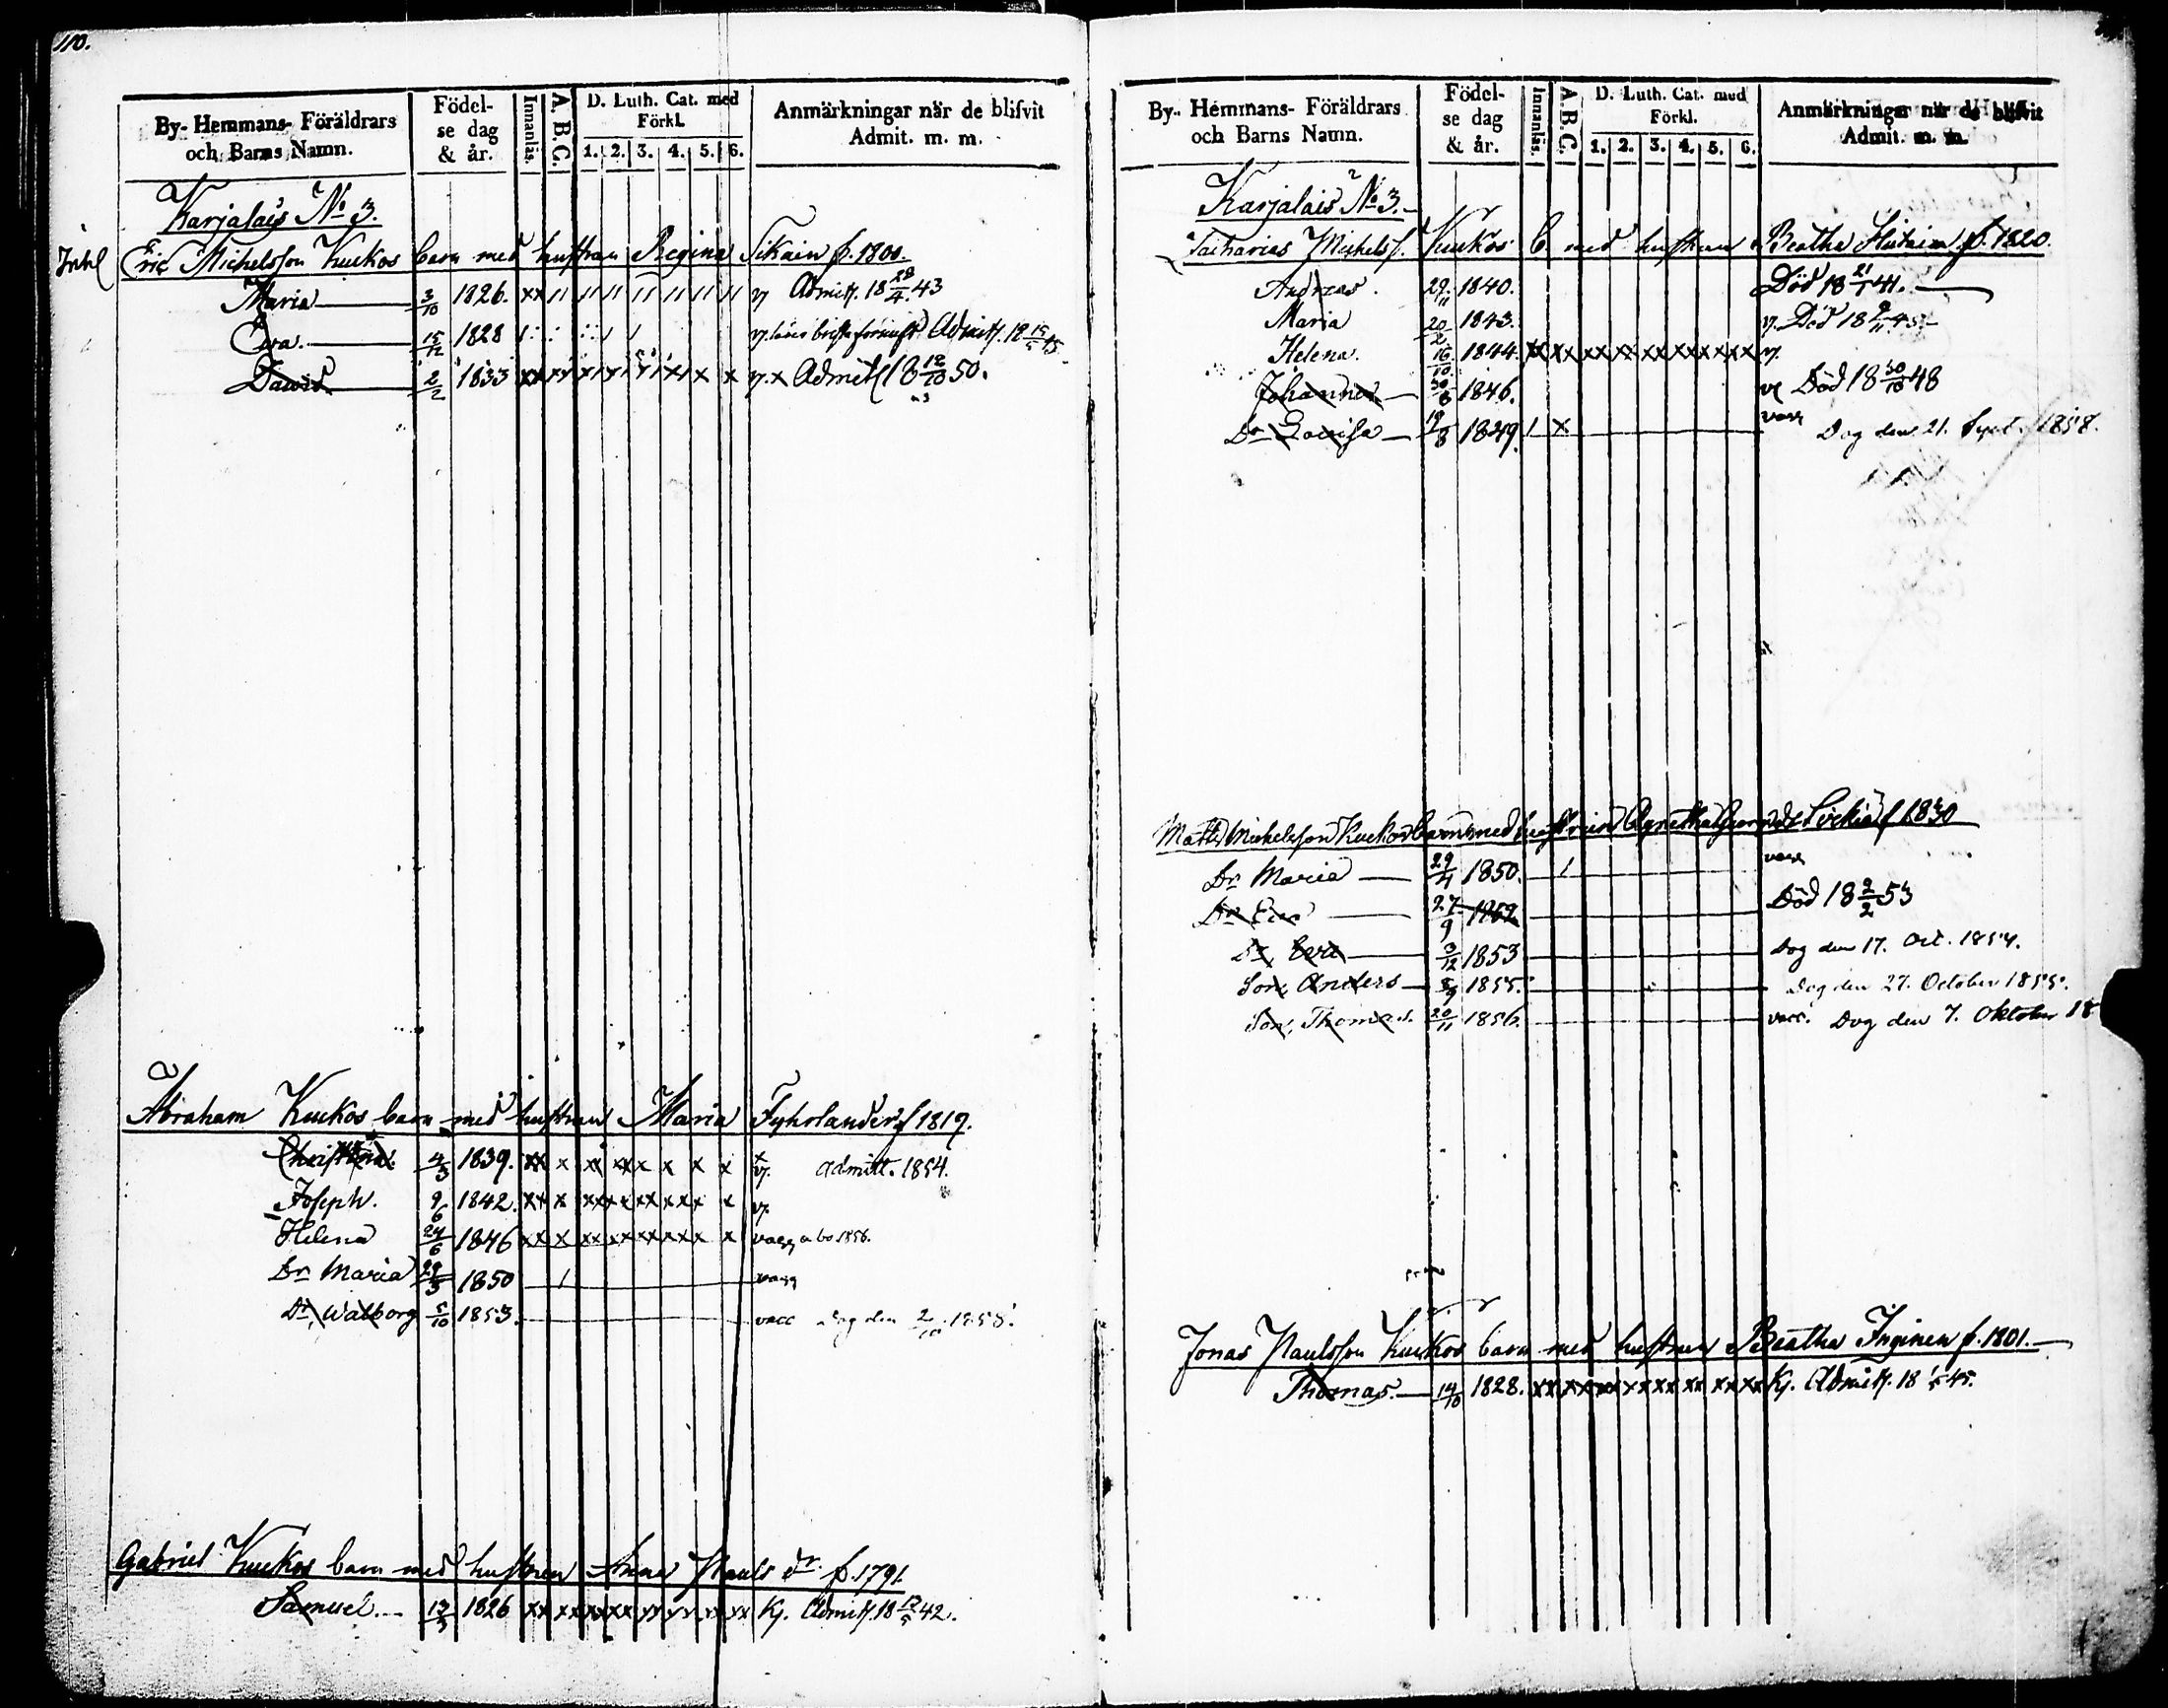 110.
By- Hemmans- Föräldrars och Barns Namn.
Födelse dag & år.
Innanläs.
A. B. C.
D. Luth. Cat. med Förkl.
1. 2. 3. 4. 5. 6.
Anmärkningar når de blifvit Admit. m. m.
Karjalais No 3.
Eric Michelsson Kuckos barn med hustrun Regina Sikain f. 1800.
Maria 3/10 1826. xx 11 11 11 11 11 11 11 v Admitt. 18 28/4 43
Ewa. 15/12 1828 Admitt. 18 15/5 45
Dawid 2/2 1833 v. x Admitt 18 12/10 50.
Abraham Kuckos barn med hustrun Maria Fyhrlander f 1819.
Christina. 4/3 1839. xx x xx xx x x x x v. admitt. 1854.
Joseph. 9/6 1842. v.
Helena 24/6 1846 vacc 1856.
Dr Maria 29/3 1850 1 vacc
Dr Walborg 5/10 1853. vacc Dog den 2/10 1858.
Gabriel Kuckos barn med hustrun Anna Pauls dr f. 1791.
Samuel. 1826 Kj. Admitt. 18 12/5 42.
By- Hemmans- Föräldrars och Barns Namn.
Födelse dag & år.
Innanläs.
A. B. C.
D. Luth. Cat. med Förkl.
1. 2. 3. 4. 5. 6.
Anmärkningar når de blifvit Admit. m. m.
Karjalais No 3.
Zacharias Michelss. Kuckos b. med hustrun Beatha f. 1820.
Andreas. 29/11 1840. Död 18 21/1 41.
Maria 20/2 1843. v. Död 18
Helena. 16/10 1844. v.
Johannes 30/8 1846. Död 18 30/10 48
Dr Lovisa 18/8 1849. 1 x vacc Dog den 21. Sept. 1858.
Matts Michelsson Kuckos barn med hustrun Agnetha f 1830
Dr Maria 29/4 1850. 1 vacc
Dr Eva 27/9 1852 Död 18 2/2 53
Dr Eva 3/12 1853 Dog den 17. Oct. 1854.
Son, Anders 5/9 1855. Dog den 27. October 1855.
Son, Thomas. 20/11 1856. vacc. Dog den 7. Oktober 18
Jonas Paulsson Kuckos barn med hustrun Beatha Inginen f. 1801.
Thomas. 14/10 1828. Kj. Admitt. 18 1/5 45.